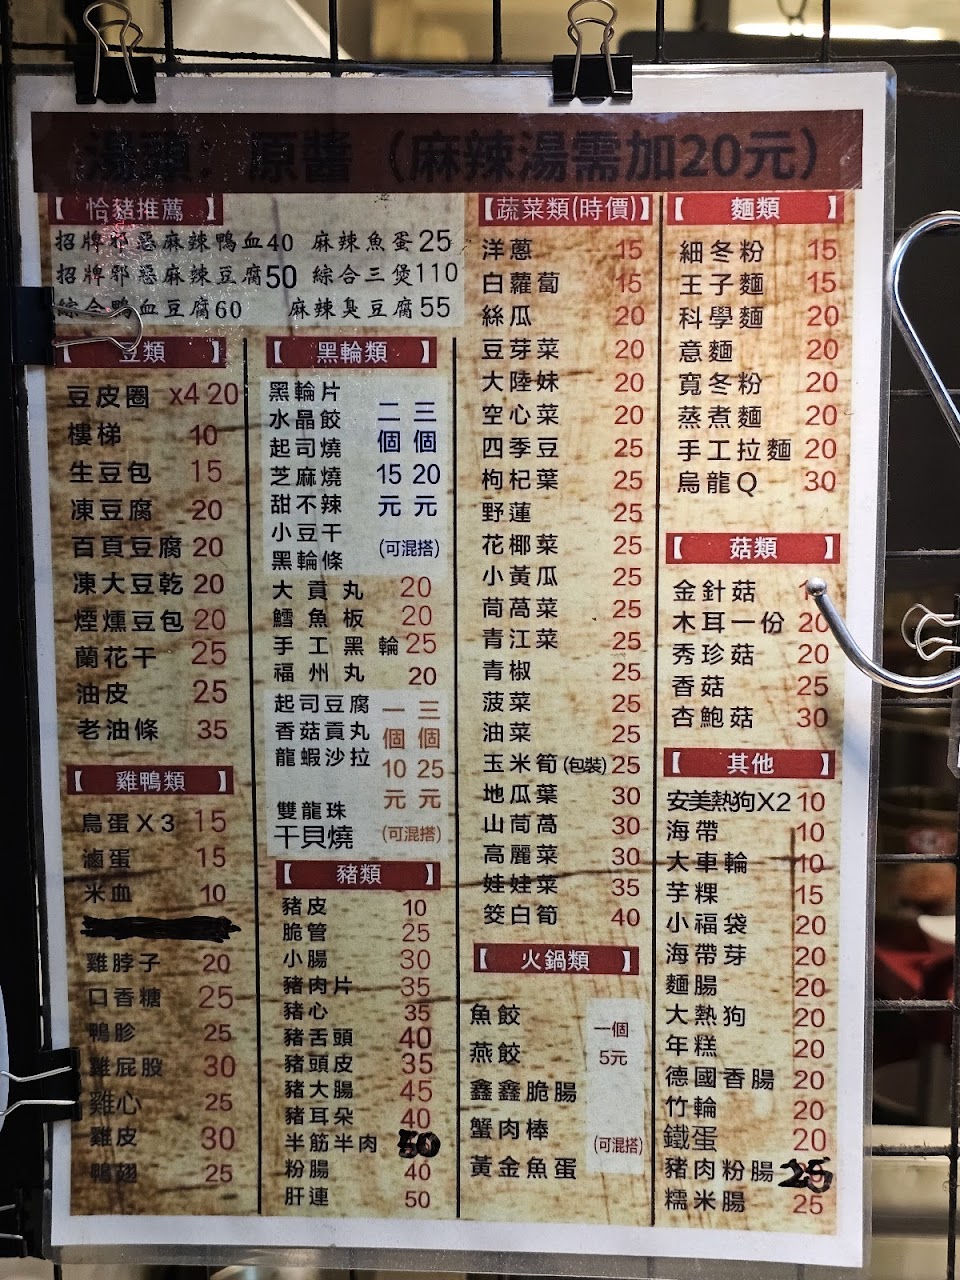 湯頭：原醬（麻辣湯需加20元）
【恰豬推薦】
招牌邪惡麻辣鴨血40 麻辣魚蛋25
招牌邪惡麻辣豆腐50 綜合三煲110
綜合鴨血豆腐60 麻辣臭豆腐55
【豆類】
豆皮圈 x4 20
樓梯 10
生豆包 15
凍豆腐 20
百頁豆腐 20
凍大豆乾 20
煙燻豆包 20
蘭花干 25
油皮 25
老油條 35
【雞鴨類】
鳥蛋X3 15
滷蛋 15
米血 10
雞脖子 20
口香糖 25
鴨胗 25
雞屁股 30
雞心 25
雞皮 30
鴨翅 25
【黑輪類】
黑輪片
水晶餃
起司燒
芝麻燒
甜不辣
小豆干
黑輪條
二個15元
三個20元
(可混搭)
大貢丸 20
鱈魚板 20
手工黑輪 25
福州丸 20
起司豆腐
香菇貢丸
龍蝦沙拉
雙龍珠
干貝燒
一個10元
三個25元
(可混搭)
【豬類】
豬皮 10
脆管 25
小腸 30
豬肉片 35
豬心 35
豬舌頭 40
豬頭皮 35
豬大腸 45
豬耳朵 40
半筋半肉 50
粉腸 40
肝連 50
【蔬菜類(時價)】
洋蔥 15
白蘿蔔 15
絲瓜 20
豆芽菜 20
大陸妹 20
空心菜 20
四季豆 25
枸杞葉 25
野蓮 25
花椰菜 25
小黃瓜 25
茼萵菜 25
青江菜 25
青椒 25
菠菜 25
油菜 25
玉米筍(包裝) 25
地瓜葉 30
山茼萵 30
高麗菜 30
娃娃菜 35
筊白筍 40
【火鍋類】
魚餃
燕餃
鑫鑫脆腸
蟹肉棒
黃金魚蛋
一個
5元
(可混搭)
【麵類】
細冬粉 15
王子麵 15
科學麵 20
意麵 20
寬冬粉 20
蒸煮麵 20
手工拉麵 20
烏龍Q 30
【菇類】
金針菇
木耳一份 20
秀珍菇 20
香菇 25
杏鮑菇 30
【其他】
安美熱狗X2 10
海帶 10
大車輪 10
芋粿 15
小福袋 20
海帶芽 20
麵腸 20
大熱狗 20
年糕 20
德國香腸 20
竹輪 20
鐵蛋 20
豬肉粉腸 25
糯米腸 25